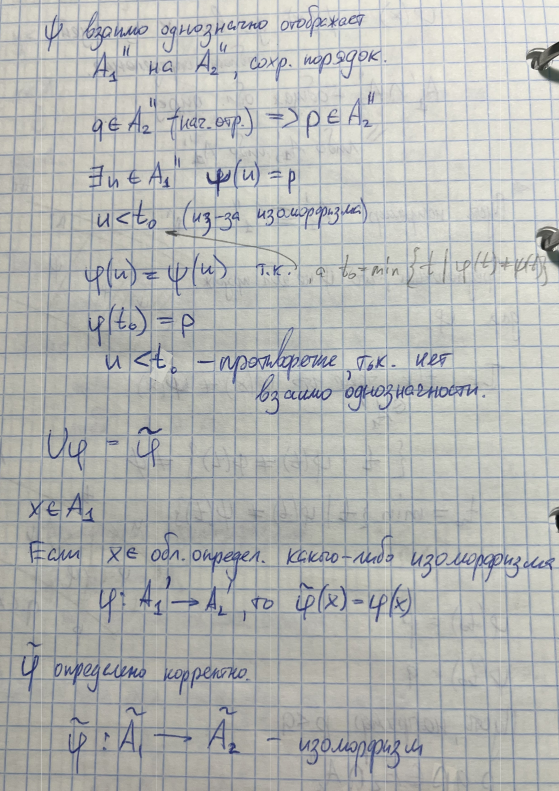 ψ взаимо однозначно отображает
A₁'' на A₂'', сохр. порядок.
q ∈ A₂'' (нач. отр.) => p ∈ A₂''
∃u ∈ A₁'' ψ(u) = p
u < t₀ (из-за изоморфизма)
φ(u) = ψ(u) т.к. , а t₀ = min {t | φ(t) ≠ ψ(t)}
φ(t₀) = p
u < t₀ – противореч, т.к. нет
взаимо однозначности.
∪φ = φ̃
x ∈ A₁
Если x ∈ обл. определ. какого-либо изоморфизма
φ : A₁' → A₂', то φ̃(x) = φ(x)
φ̃ определено корректно.
φ̃ : Ã₁ → Ã₂ – изоморфизм